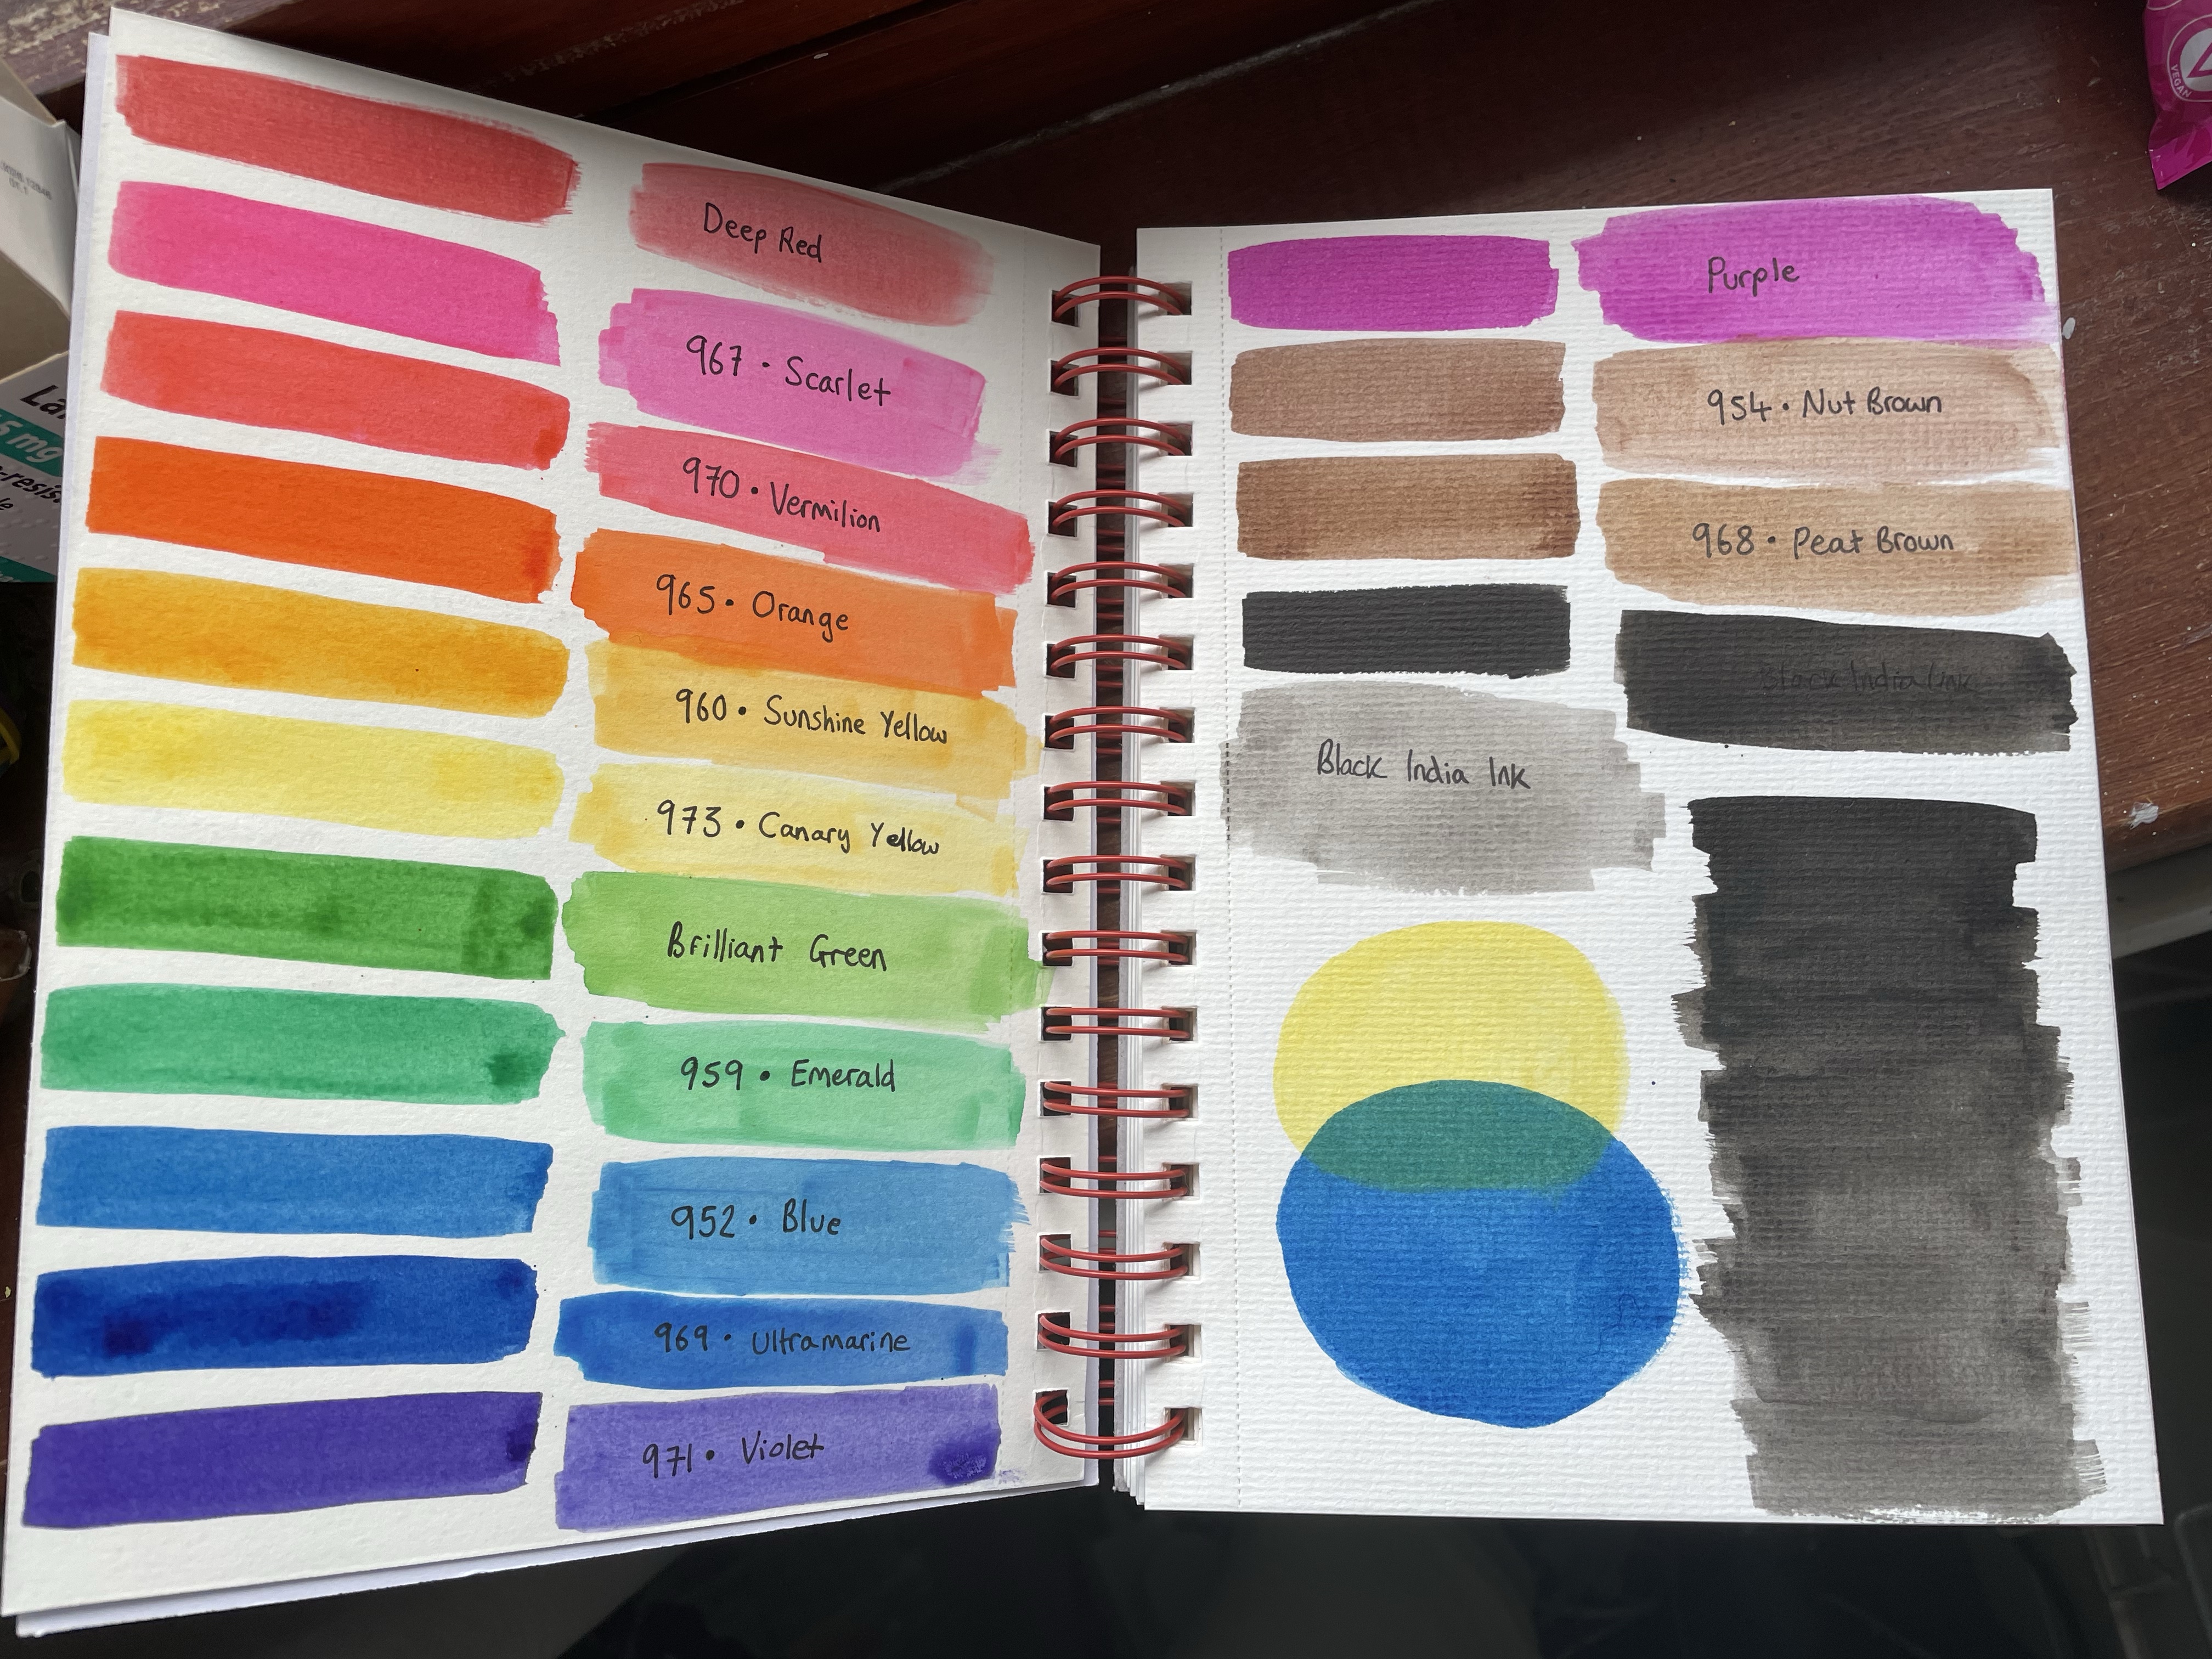 Deep Red
967 • Scarlet
970 • Vermilion
965 • Orange
960 • Sunshine Yellow
973 • Canary Yellow
Brilliant Green
959 • Emerald
952 • Blue
969 • Ultramarine
971 • Violet
Purple
954 • Nut Brown
968 • Peat Brown
Black India Ink
Black India Ink
VEGAN
5 mg